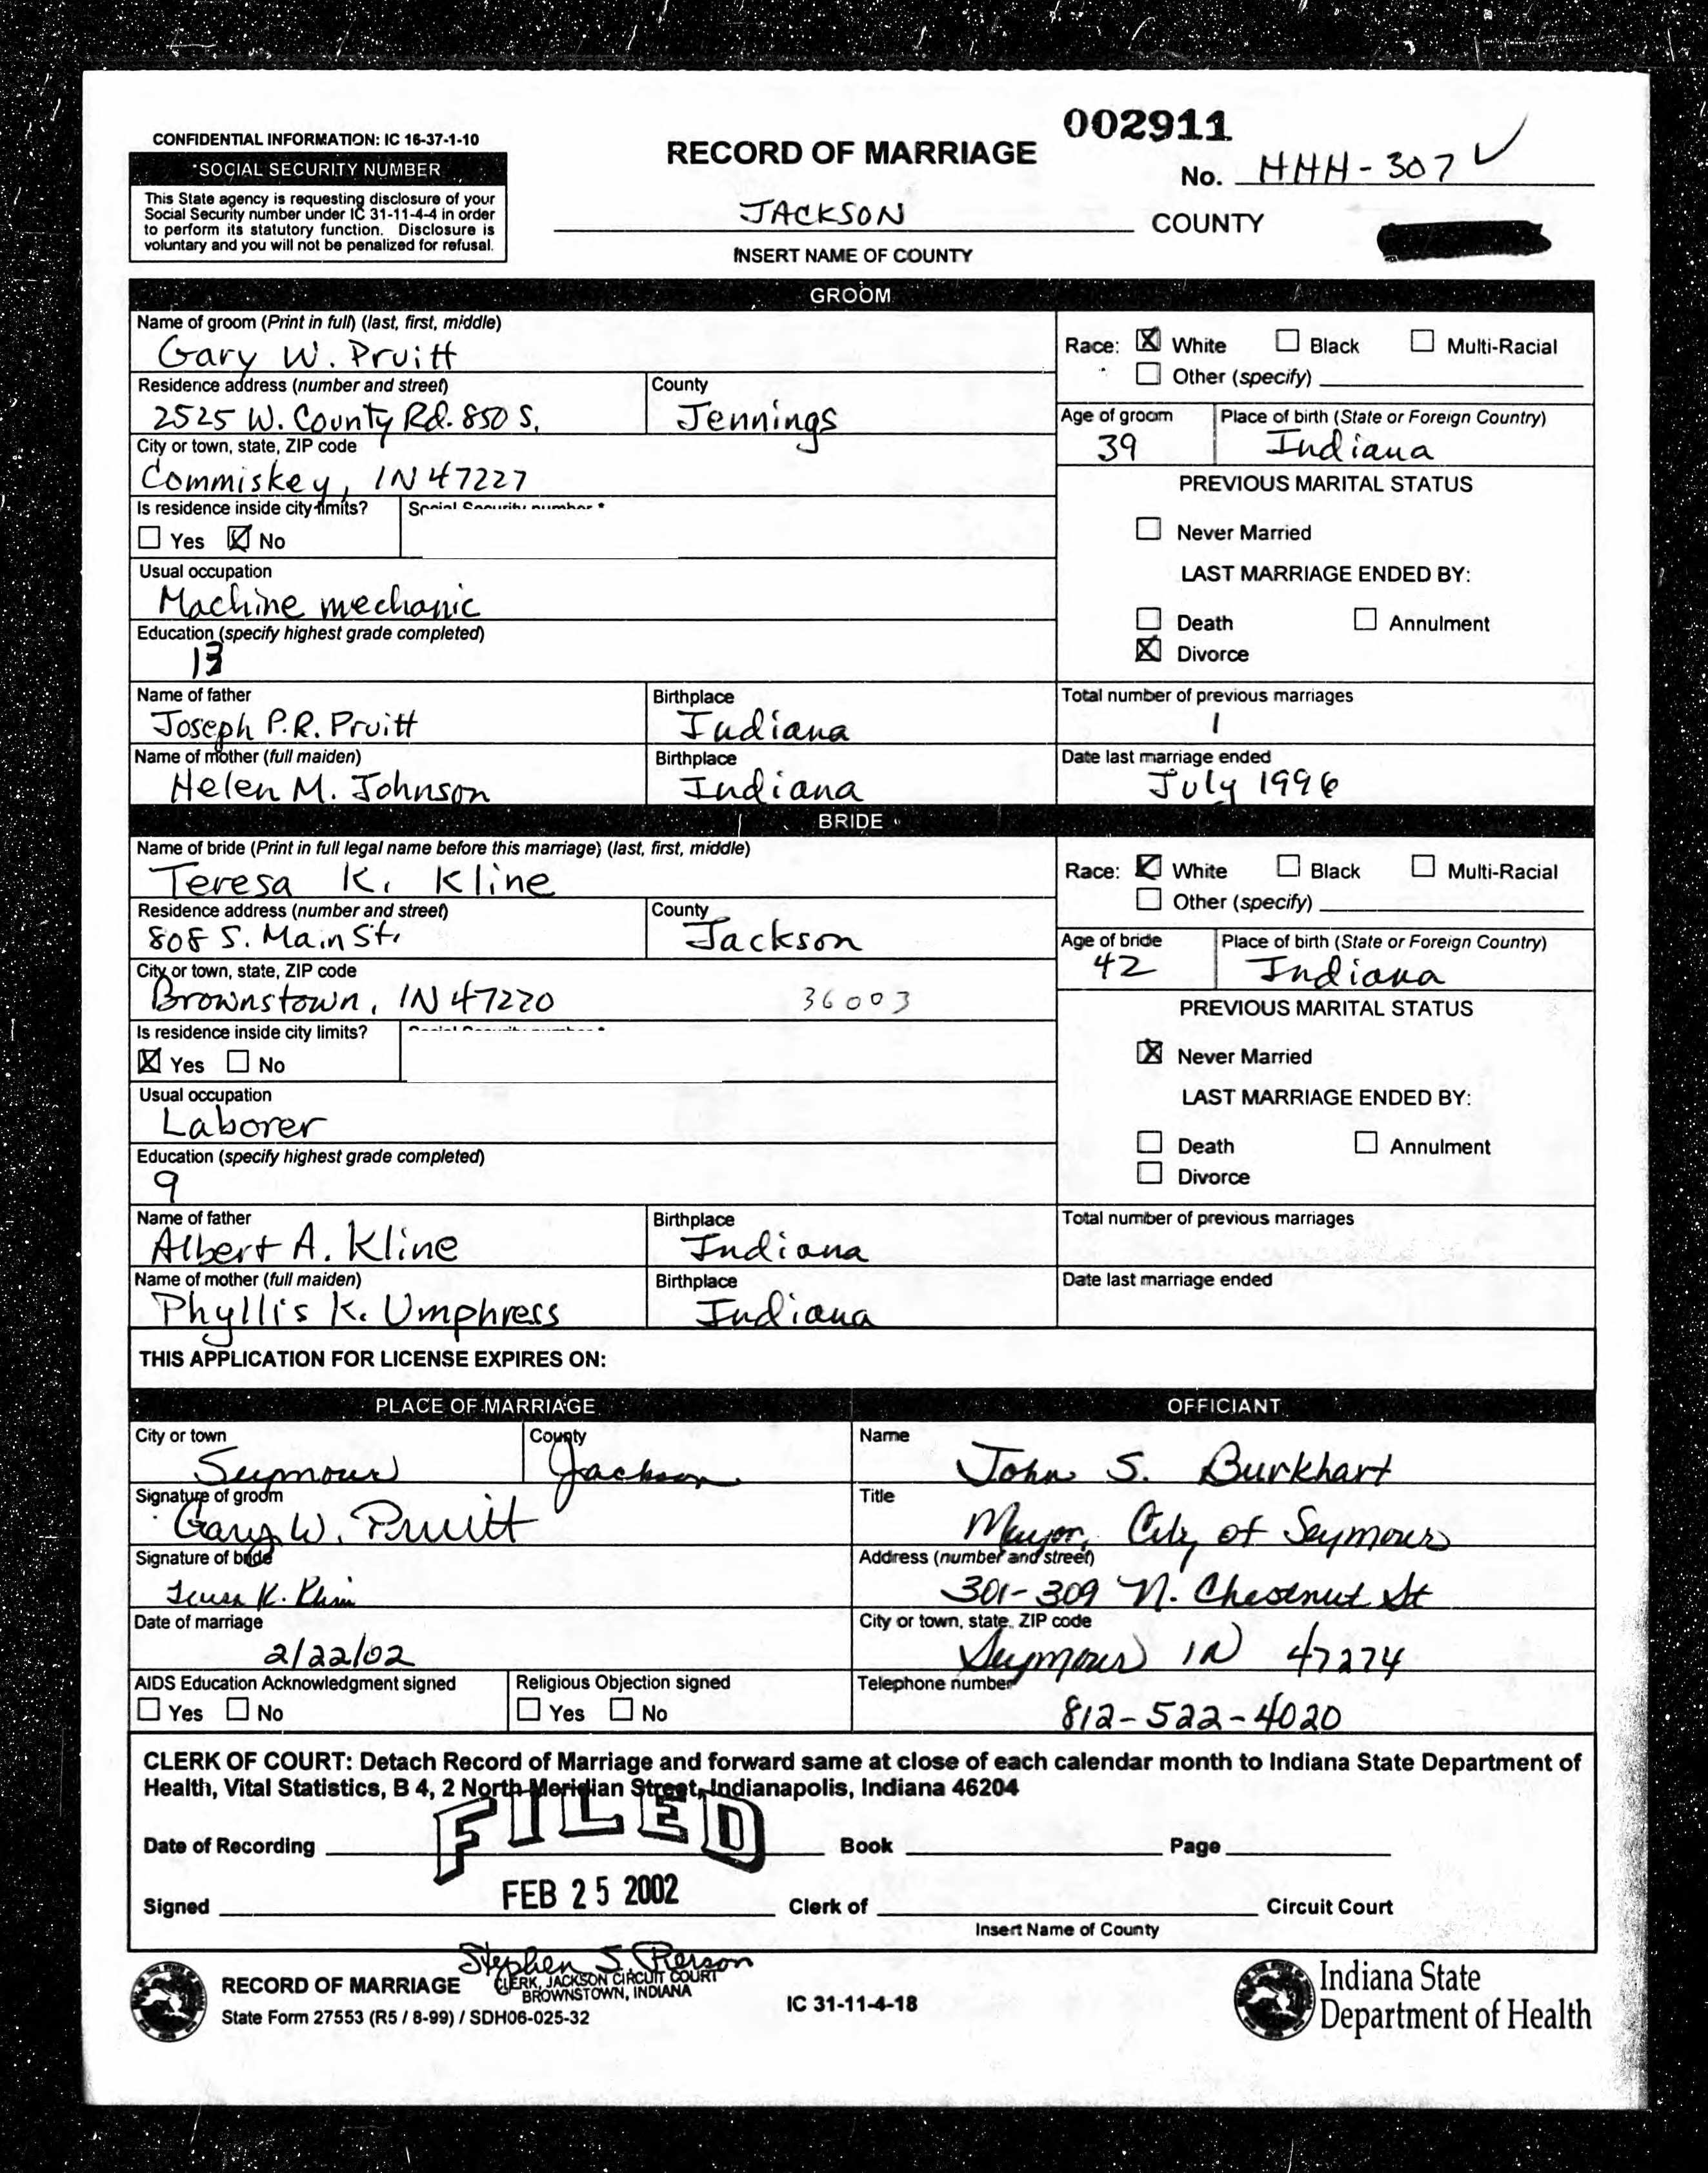 CONFIDENTIAL INFORMATION: IC 16-37-1-10
*SOCIAL SECURITY NUMBER
This State agency is requesting disclosure of your
Social Security number under IC 31-11-4-4 in order
to perform its statutory function. Disclosure is
voluntary and you will not be penalized for refusal.
002911
RECORD OF MARRIAGE
No. HHH-307 ✓
JACKSON COUNTY
INSERT NAME OF COUNTY
GROOM
Name of groom (Print in full) (last, first, middle)
Gary W. Pruitt
Race: ☒ White ☐ Black ☐ Multi-Racial
☐ Other (specify)
Residence address (number and street)
2525 W. County Rd. 850 S.
County
Jennings
Age of groom
39
Place of birth (State or Foreign Country)
Indiana
City or town, state, ZIP code
Commiskey, IN 47227
PREVIOUS MARITAL STATUS
Is residence inside city limits?
☐ Yes ☒ No
Social Security number *
☐ Never Married
LAST MARRIAGE ENDED BY:
Usual occupation
Machine mechanic
☐ Death ☐ Annulment
☒ Divorce
Education (specify highest grade completed)
13
Name of father
Joseph P.R. Pruitt
Birthplace
Indiana
Total number of previous marriages
1
Name of mother (full maiden)
Helen M. Johnson
Birthplace
Indiana
Date last marriage ended
July 1996
BRIDE
Name of bride (Print in full legal name before this marriage) (last, first, middle)
Teresa K. Kline
Race: ☒ White ☐ Black ☐ Multi-Racial
☐ Other (specify)
Residence address (number and street)
808 S. Main St.
County
Jackson
Age of bride
42
Place of birth (State or Foreign Country)
Indiana
City or town, state, ZIP code
Brownstown, IN 47220 36003
PREVIOUS MARITAL STATUS
Is residence inside city limits?
☒ Yes ☐ No
☒ Never Married
LAST MARRIAGE ENDED BY:
Usual occupation
Laborer
☐ Death ☐ Annulment
☐ Divorce
Education (specify highest grade completed)
9
Name of father
Albert A. Kline
Birthplace
Indiana
Total number of previous marriages
Name of mother (full maiden)
Phyllis K. Umphress
Birthplace
Indiana
Date last marriage ended
THIS APPLICATION FOR LICENSE EXPIRES ON:
PLACE OF MARRIAGE
OFFICIANT
City or town
Seymour
County
Jackson
Name
John S. Burkhart
Signature of groom
Gary W. Pruitt
Title
Mayor, City of Seymour
Signature of bride
Teresa K. Kline
Address (number and street)
301-309 N. Chestnut St
Date of marriage
2/22/02
City or town, state, ZIP code
Seymour IN 47274
AIDS Education Acknowledgment signed
☐ Yes ☐ No
Religious Objection signed
☐ Yes ☐ No
Telephone number
812-522-4020
CLERK OF COURT: Detach Record of Marriage and forward same at close of each calendar month to Indiana State Department of
Health, Vital Statistics, B 4, 2 North Meridian Street, Indianapolis, Indiana 46204
FILED
Date of Recording Book Page
FEB 25 2002
Signed Clerk of Circuit Court
Insert Name of County
Stephen S. Pierson
CLERK, JACKSON CIRCUIT COURT
BROWNSTOWN, INDIANA
RECORD OF MARRIAGE
State Form 27553 (R5 / 8-99) / SDH06-025-32
IC 31-11-4-18
Indiana State
Department of Health